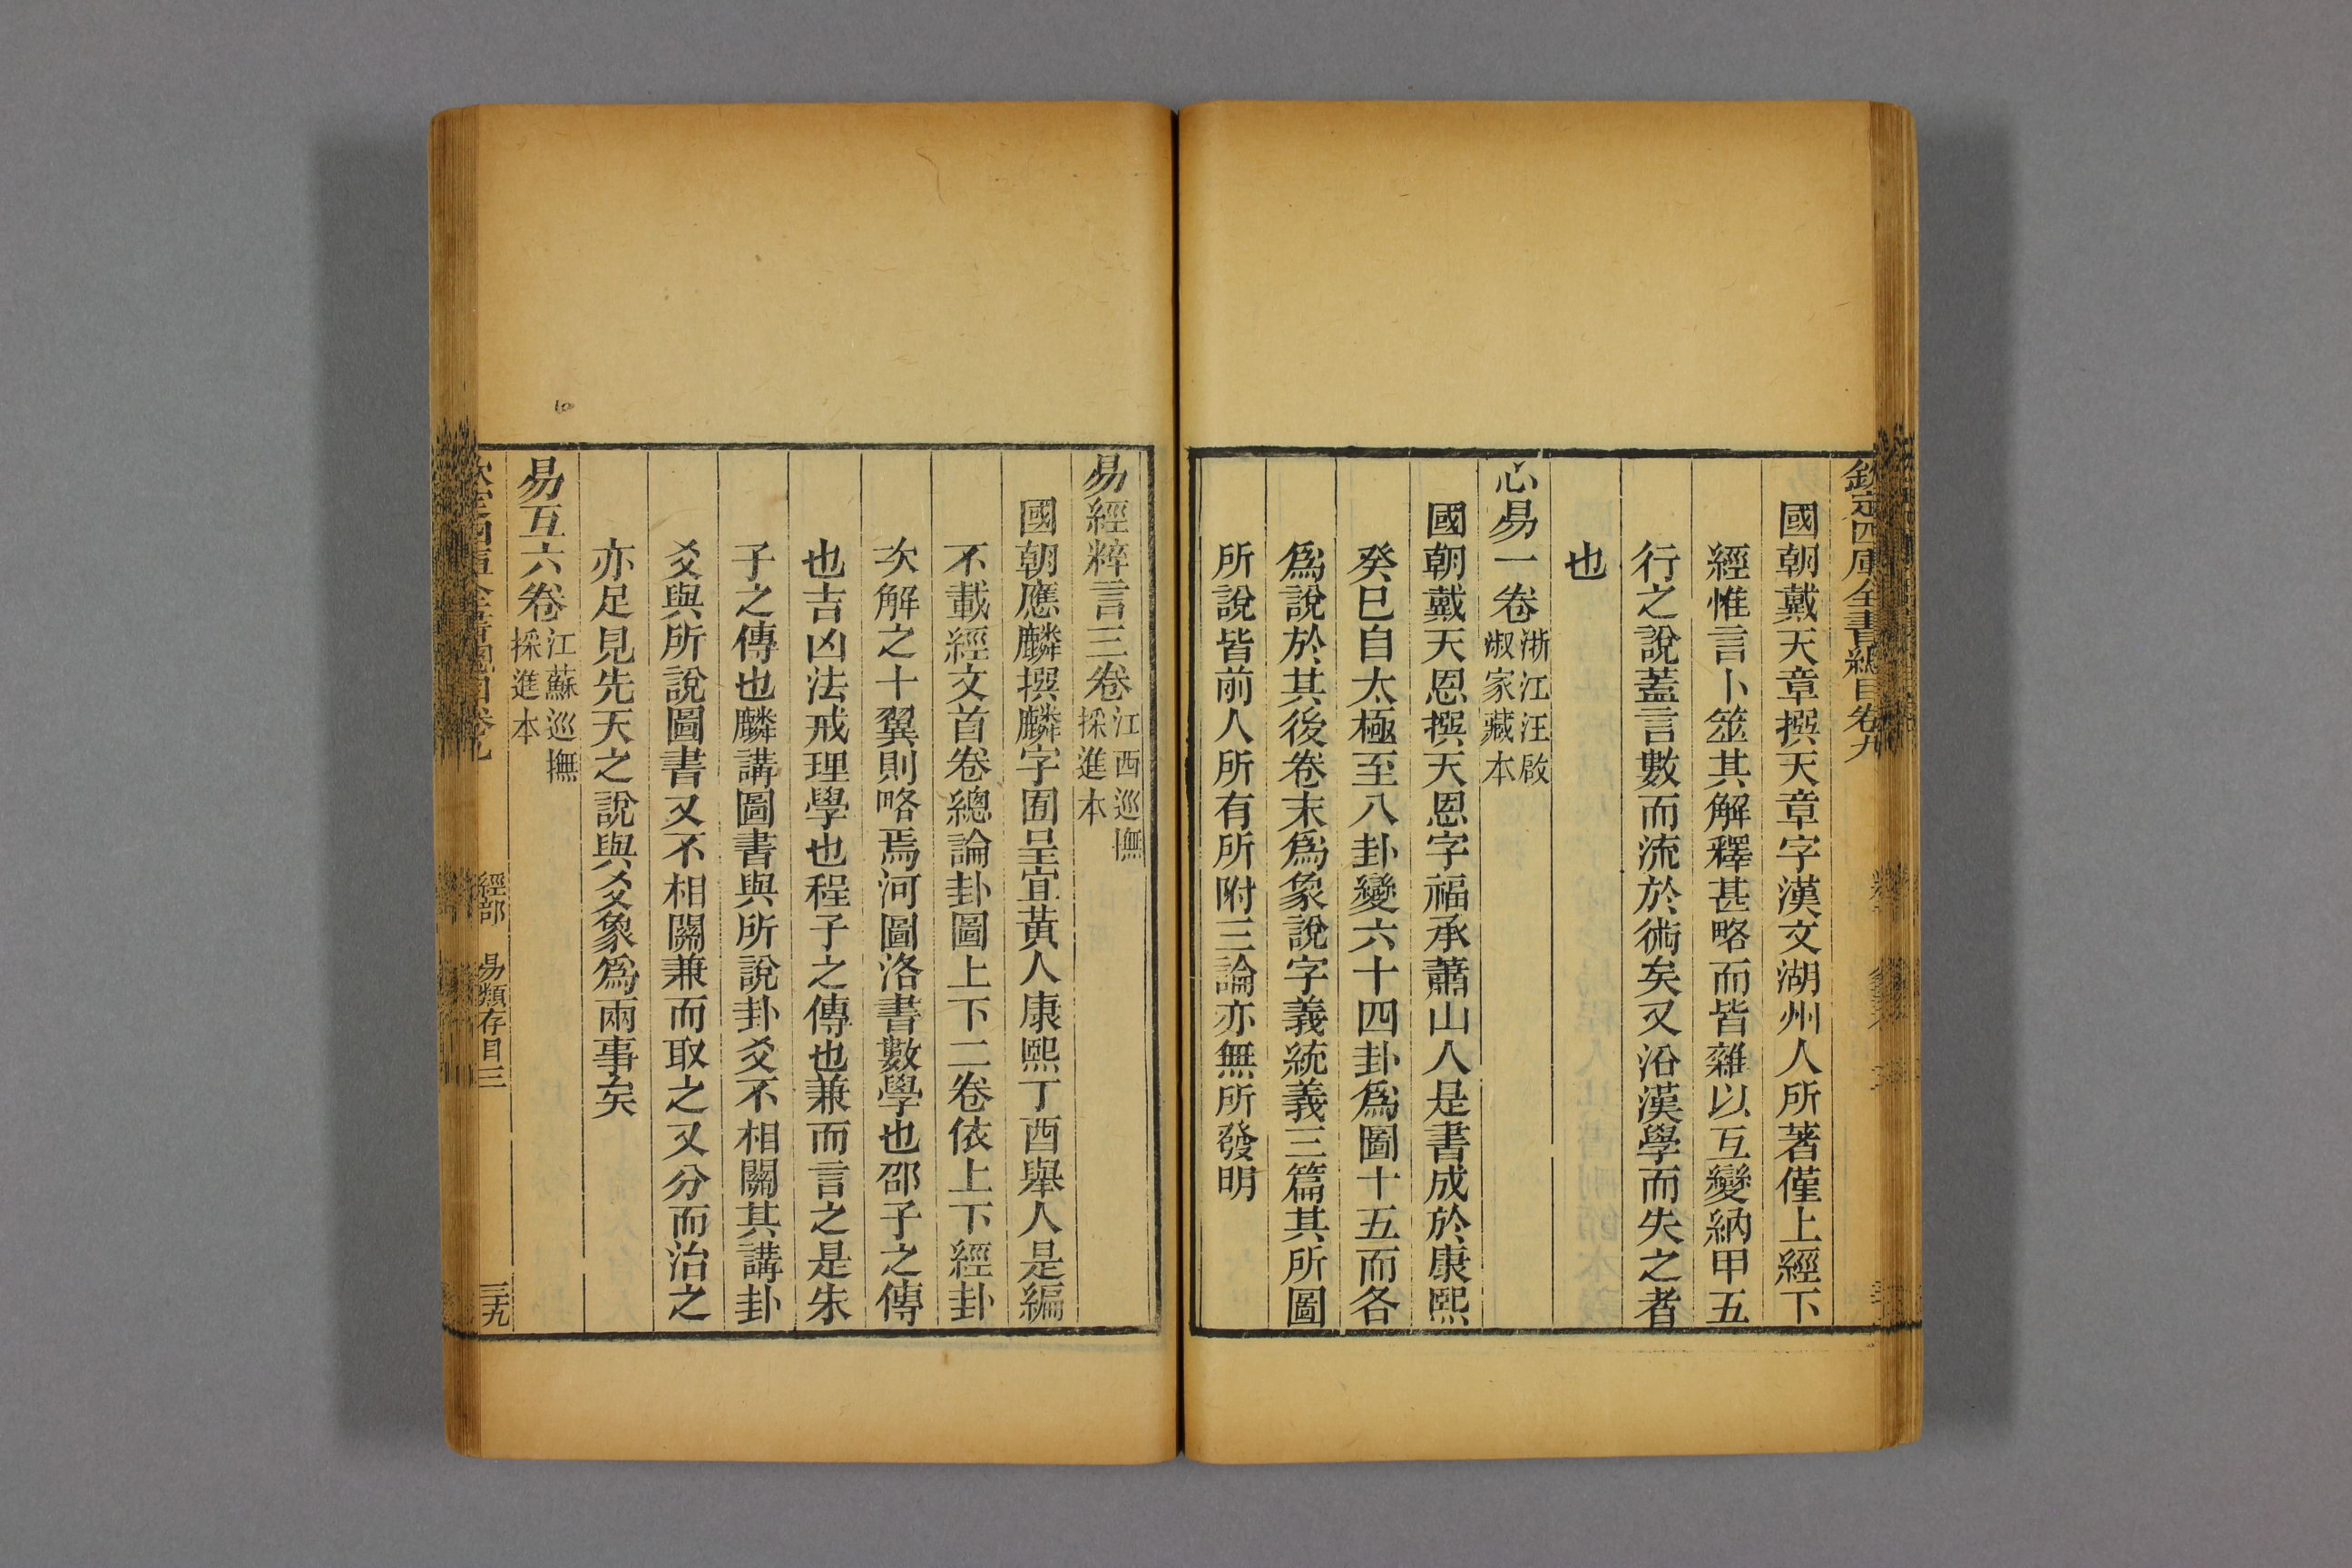 欽定四庫全書總目卷九
國朝戴天章撰天章字漢文湖州人所著僅上經下
經惟言卜筮其解釋甚略而皆雜以互變納甲五
行之說蓋言數而流於術矣又沿漢學而失之者
也
心易一卷
浙江汪啟
淑家藏本
國朝戴天恩撰天恩字福承蕭山人是書成於康熙
癸巳自太極至八卦變六十四卦為圖十五而各
為說於其後卷末為象說字義統義三篇其所圖
所說皆前人所有所附三論亦無所發明
易經粹言三卷
江西巡撫
採進本
國朝應麟撰麟字囿呈宜黃人康熙丁酉舉人是編
不載經文首卷總論卦圖上下二卷依上下經卦
次解之十翼則略焉河圖洛書數學也邵子之傳
也吉凶法戒理學也程子之傳也兼而言之是朱
子之傳也麟講圖書與所說卦爻不相關其講卦
爻與所說圖書又不相關兼而取之又分而治之
亦足見先天之說與爻象為兩事矣
易互六卷
江蘇巡撫
採進本
經部 易類存目三
三九